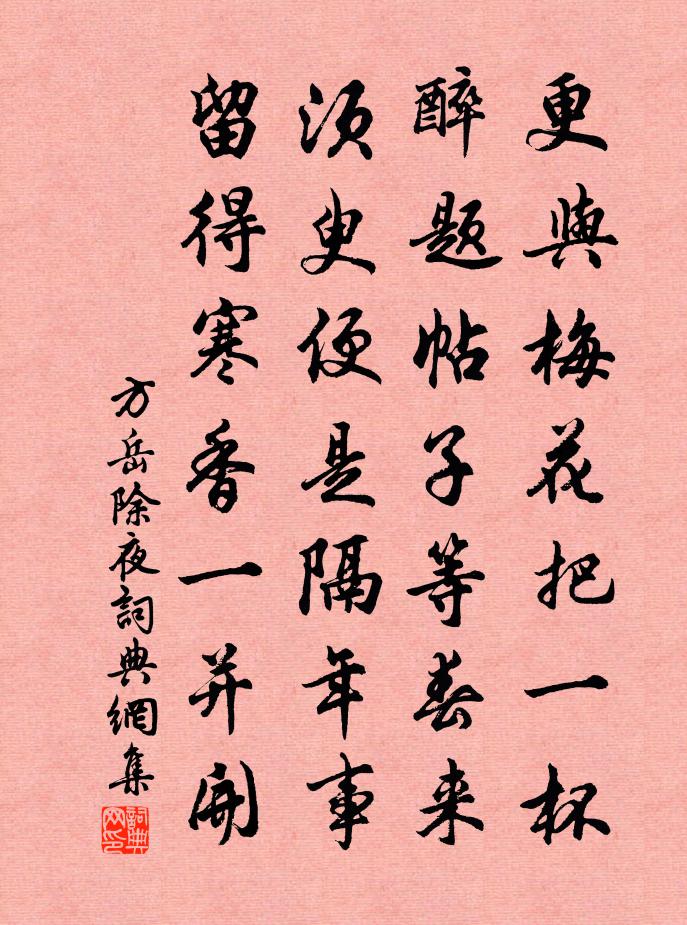 更與梅花把一杯
醉题帖子等春来
須臾便是隔年事
留得寒香一并開
方岳除夜詞典網集
詞典网印